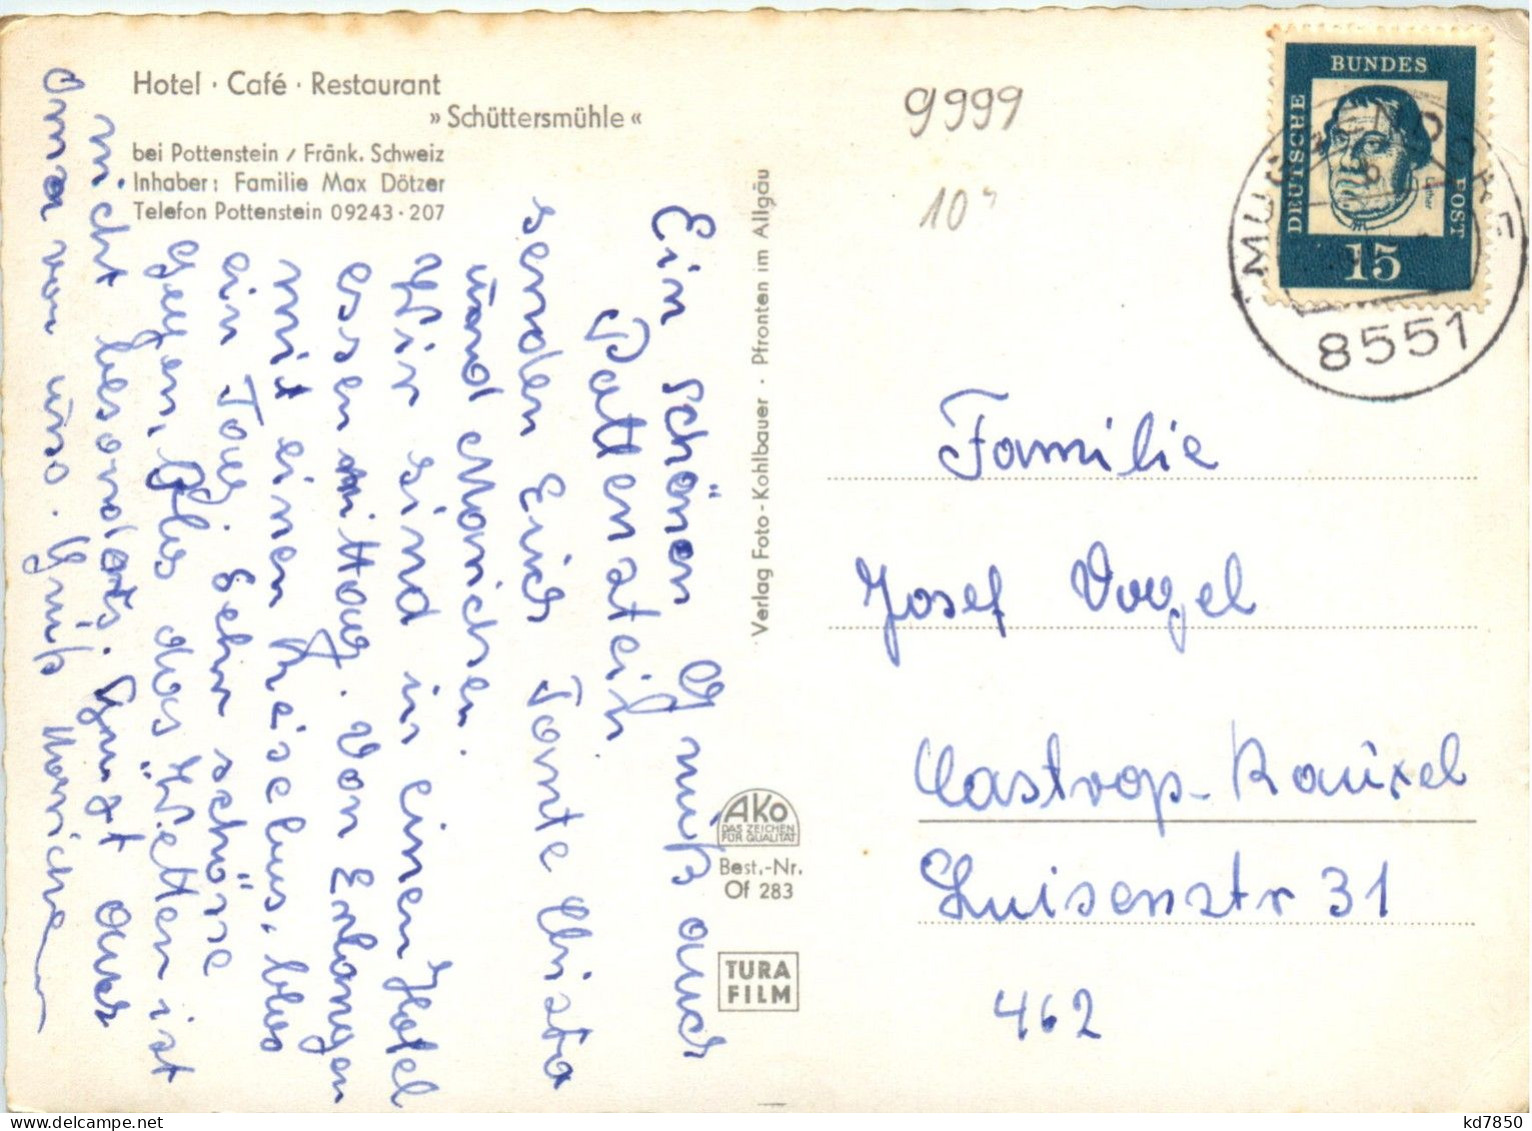 Hotel · Café · Restaurant
» Schüttersmühle «
bei Pottenstein / Fränk. Schweiz
Inhaber: Familie Max Dötzer
Telefon Pottenstein 09243 · 207
Ein schönen Gruß aus
Pattenstein
senden Euch Tante Christa
und Marichen.
Wir sind in einen Hotel
essen mittag. Von Erlangen
mit einen Reisebus, blos
ein Tag. Sehr schöne
Gegen, Blos das Wetter ist
nicht besonders. Gruß aus
Oma von uns. Gruß Marichen
Verlag Foto-Kohlbauer · Pfronten im Allgäu
AKO
DAS ZEICHEN
FÜR QUALITÄT
Best.-Nr.
Of 283
TURA
FILM
9999
10
DEUTSCHE
BUNDES
POST
Luther
15
8551
Familie
Josef Vogel
Castrop-Rauxel
Luisenstr 31
462
kd7850